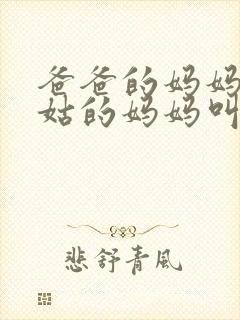 爸爸的妈妈
姑的妈妈叫
悲舒青风